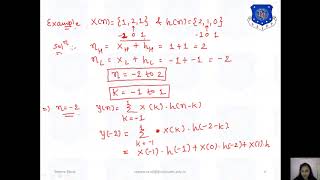 Example X(n)={1,2,1} & h(n)={2,1,0}
-1 0 1 -1 0 1
Soln:- nH = XH + hH = 1+1 = 2
nL = XL + hL = -1+-1 = -2
n = -2 to 2
K = -1 to 1
⇒ n=-2 y(n) = Σ x(k)·h(n-k)
K=-1
y(-2) = Σ x(k)·h(-2-k)
K=-1
= x(-1)·h(-1)+x(0)·h(-2)+x(1)·h